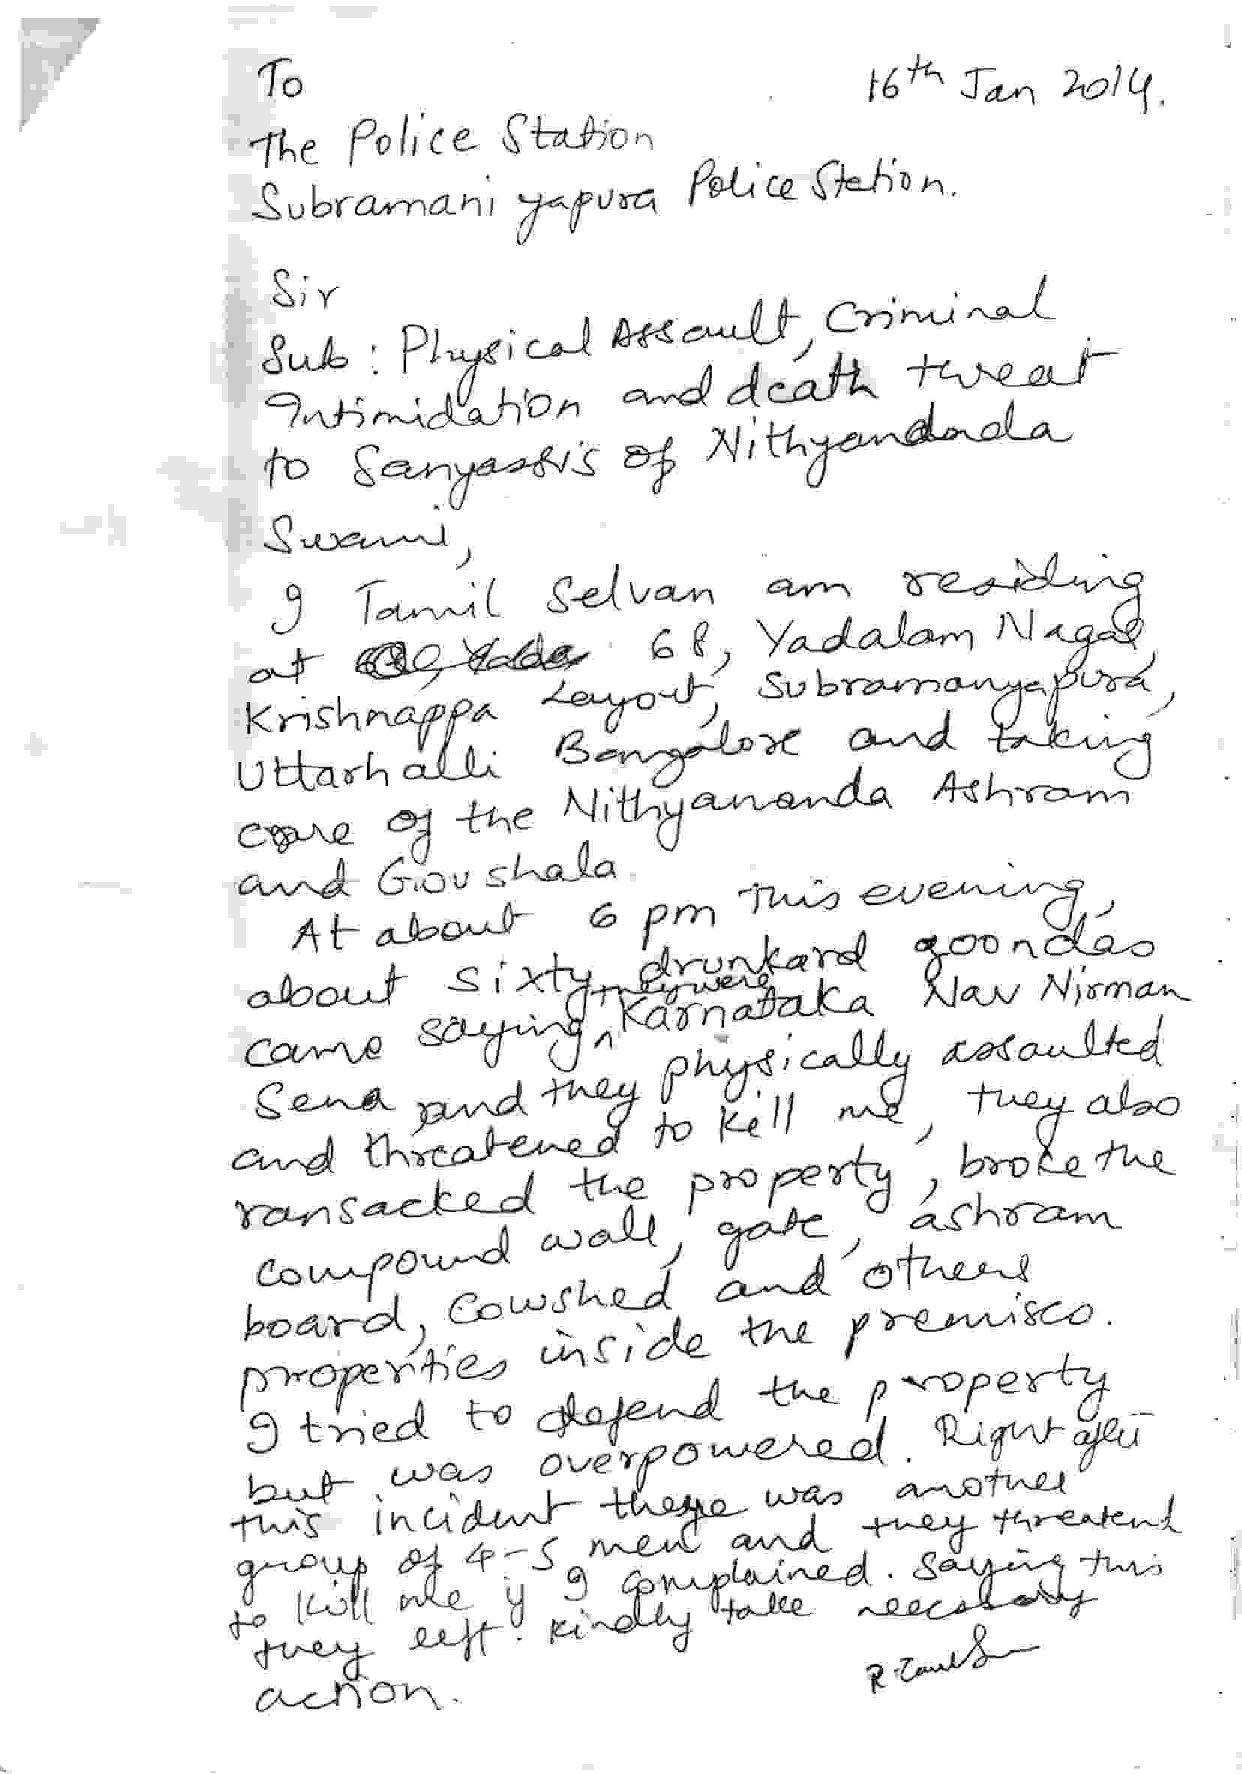 To
16th Jan 2014.
The Police Station
Subramaniyapura Police Station.
Sir
Sub: Physical Assault, Criminal
Intimidation and death threat
to Sanyassis of Nithyandada
Swami,
I Tamil Selvan am residing
at 68, Yadalam Nagar,
Krishnappa Layout, Subramanyapura,
Uttarhalli Bangalore and taking
care of the Nithyananda Ashram
and Goushala.
At about 6 pm this evening,
about sixty drunkard goondas
came saying they were Karnataka Nav Nirman
Sena and they physically assaulted
and threatened to kill me, they also
ransacked the property, broke the
compound wall, gate, ashram
board, cowshed and others
properties inside the premises.
I tried to defend the property
but was overpowered. Right after
this incident there was another
group of 4-5 men and they threatend
to kill me if I complained. Saying this
they left. Kindly take necessary
action.